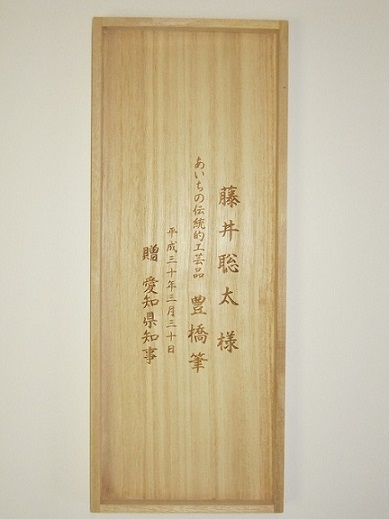 藤井聡太様
あいちの伝統的工芸品 豊橋筆
平成三十年三月三十日
贈 愛知県知事